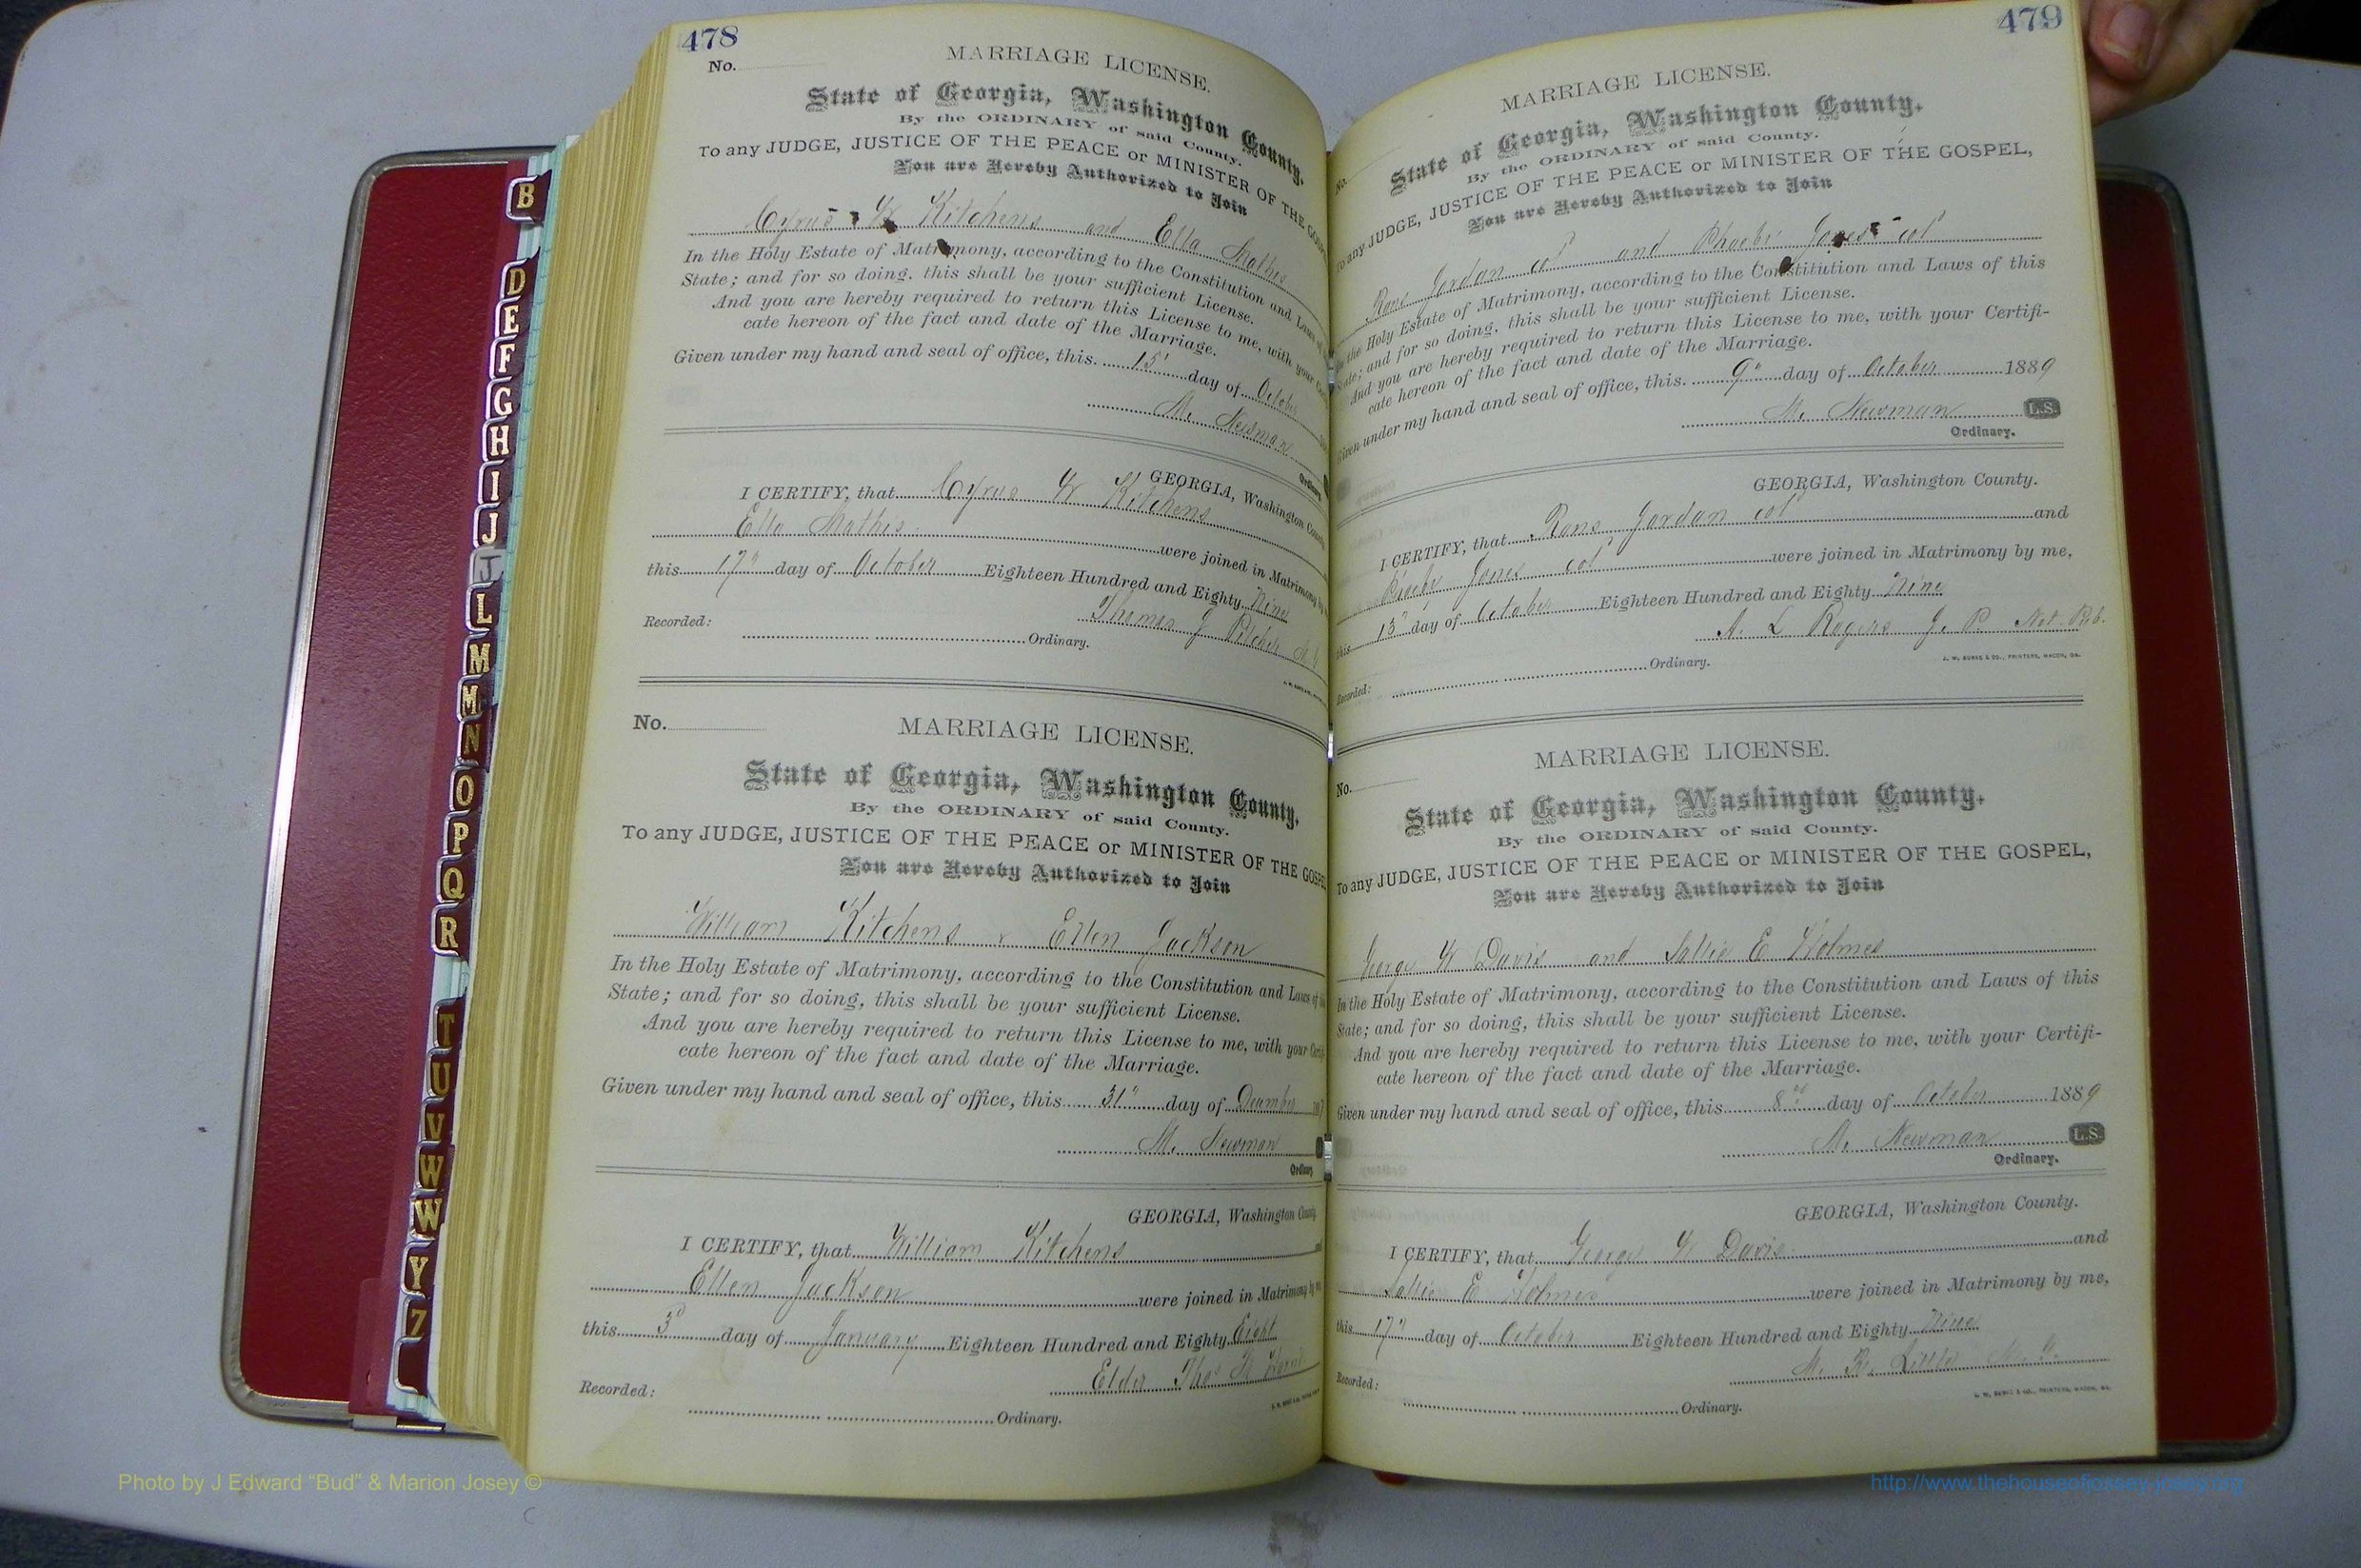 478
No.
MARRIAGE LICENSE.
State of Georgia, Washington County.
By the ORDINARY of said County.
To any JUDGE, JUSTICE OF THE PEACE or MINISTER OF THE GOSP
You are Hereby Authorized to Join
Cyrus W Kitchens and Ella Mathis
In the Holy Estate of Matrimony, according to the Constitution and Laws of
State; and for so doing, this shall be your sufficient License.
And you are hereby required to return this License to me, with your
cate hereon of the fact and date of the Marriage.
Given under my hand and seal of office, this 15" day of October
M. Newman
Ordinary.
GEORGIA, Washington County.
I CERTIFY, that Cyrus W Kitchens
Ella Mathis were joined in Matrimony by
this 17" day of October Eighteen Hundred and Eighty Nine
Thomas J Pilcher
Recorded: Ordinary.
No.
MARRIAGE LICENSE.
State of Georgia, Washington County.
By the ORDINARY of said County.
To any JUDGE, JUSTICE OF THE PEACE or MINISTER OF THE GOSPEL
You are Hereby Authorized to Join
William Kitchens & Ellen Jackson
In the Holy Estate of Matrimony, according to the Constitution and Laws of
State; and for so doing, this shall be your sufficient License.
And you are hereby required to return this License to me, with your Certi
cate hereon of the fact and date of the Marriage.
Given under my hand and seal of office, this 31" day of December
M. Newman
Ordinary
GEORGIA, Washington County.
I CERTIFY, that William Kitchens
Ellen Jackson were joined in Matrimony by
this 3d day of January Eighteen Hundred and Eighty Eight
Elder Thos
Recorded:
Ordinary.
479
No.
MARRIAGE LICENSE.
State of Georgia, Washington County.
By the ORDINARY of said County.
To any JUDGE, JUSTICE OF THE PEACE or MINISTER OF THE GOSPEL,
You are Hereby Authorized to Join
Jordan col and Phoebe Jones col
the Holy Estate of Matrimony, according to the Constitution and Laws of this
State; and for so doing, this shall be your sufficient License.
And you are hereby required to return this License to me, with your Certifi-
cate hereon of the fact and date of the Marriage.
Given under my hand and seal of office, this 9" day of October 1889
M. Newman L.S.
Ordinary.
GEORGIA, Washington County.
I CERTIFY, that Jordan col and
Jones col were joined in Matrimony by me,
this 13" day of October Eighteen Hundred and Eighty Nine
A. L Rogers J. P. Not. Pub.
Recorded: Ordinary.
J. W. BURKE & CO., PRINTERS, MACON, GA.
No.
MARRIAGE LICENSE.
State of Georgia, Washington County.
By the ORDINARY of said County.
To any JUDGE, JUSTICE OF THE PEACE or MINISTER OF THE GOSPEL,
You are Hereby Authorized to Join
George W Davis and Sallie E Holmes
In the Holy Estate of Matrimony, according to the Constitution and Laws of this
State; and for so doing, this shall be your sufficient License.
And you are hereby required to return this License to me, with your Certifi-
cate hereon of the fact and date of the Marriage.
Given under my hand and seal of office, this 8 day of October 1889
M. Newman L.S.
Ordinary.
GEORGIA, Washington County.
I CERTIFY, that George W Davis and
Sallie E Holmes were joined in Matrimony by me,
this 17" day of October Eighteen Hundred and Eighty Nine
Little M. G.
Recorded:
Ordinary.
J. W. BURKE & CO., PRINTERS, MACON, GA.
B
D
E
F
G
H
I
J
J
L
M
M
N
O
P
Q
R
T
U
V
W
W
Y
Z
Photo by J Edward “Bud” & Marion Josey ©
http://www.thehouseofjossey-josey.org